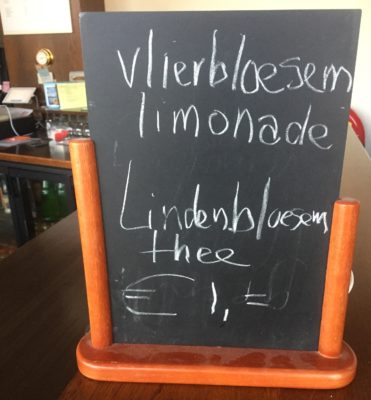 vlierbloesem
limonade
Lindenbloesem
thee
€ 1,=